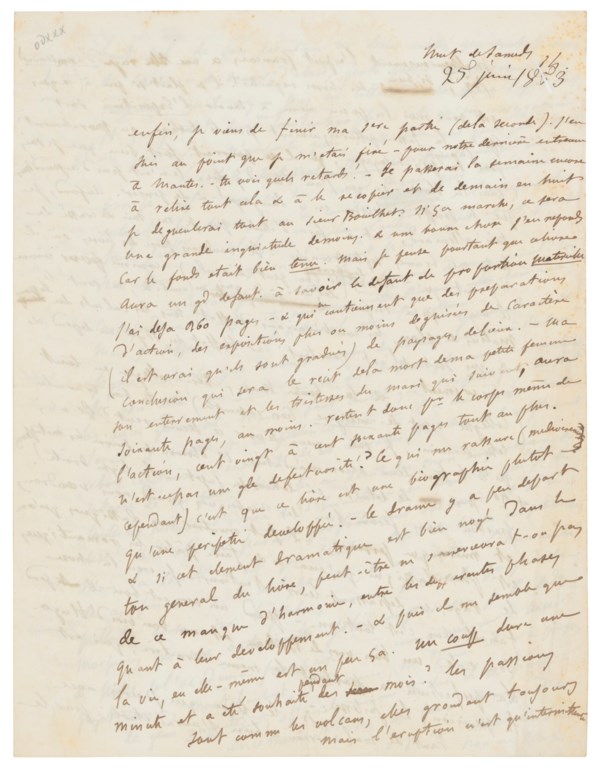 nuit de samedi
25 juin 1853
enfin, je viens de finir ma 1ere partie (de la seconde). J'en
suis au point que je m'étais fixé - pour notre dernière entrevue
à Mantes. - tu vois quels retards! - Je passerai la semaine encore
à relire tout cela & à le recopier et de demain en huit
je degueulerai tout au sieur Bouilhet. Si ça marche, ce sera
une grande inquiétude de moins. & une bonne chose j'en réponds
Car le fonds était bien tenu. mais je pense pourtant que ce livre
aura un gd defaut. à savoir le defaut de proportion matérielle
J'ai deja 260 pages - & qui ne contiennent que des préparations
d'action, des expositions plus ou moins déguisées de caractère
(il est vrai qu'ils sont gradués) de paysages, de lieux. - Ma
Conclusion qui sera le récit de la mort de ma petite femme
son enterrement et les tristesses du mari qui suivent, aura
soixante pages, au moins. restent donc pr. le corps même de
l'action, cent vingt à cent soixante pages tout au plus.
N'est-ce pas une gde défectuosité? Ce qui me rassure (médiocrement
cependant) c'est que ce livre est une biographie plutôt
qu'une péripétie développée. - le drame y a peu de part
& si cet élément dramatique est bien noyé dans le
ton general du livre, peut-être ne s'apercevra-t-on pas
de ce manque d'harmonie, entre les différentes phases
quant à leur développement. - & puis il me semble que
la vie, en elle-même est un peu ça. un coup dure une
minute et a été souhaité pendant des mois? les passions
sont comme les volcans, elles grondent toujours
mais l'éruption n'est qu'intermittente